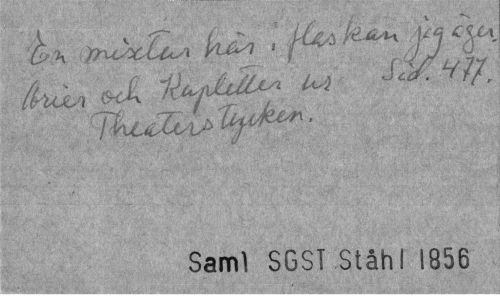 En mixtur här i flaskan jag äger,
Arier och Kupletter ur Sid. 477.
Theaterstycken.
Saml SGST Ståhl 1856